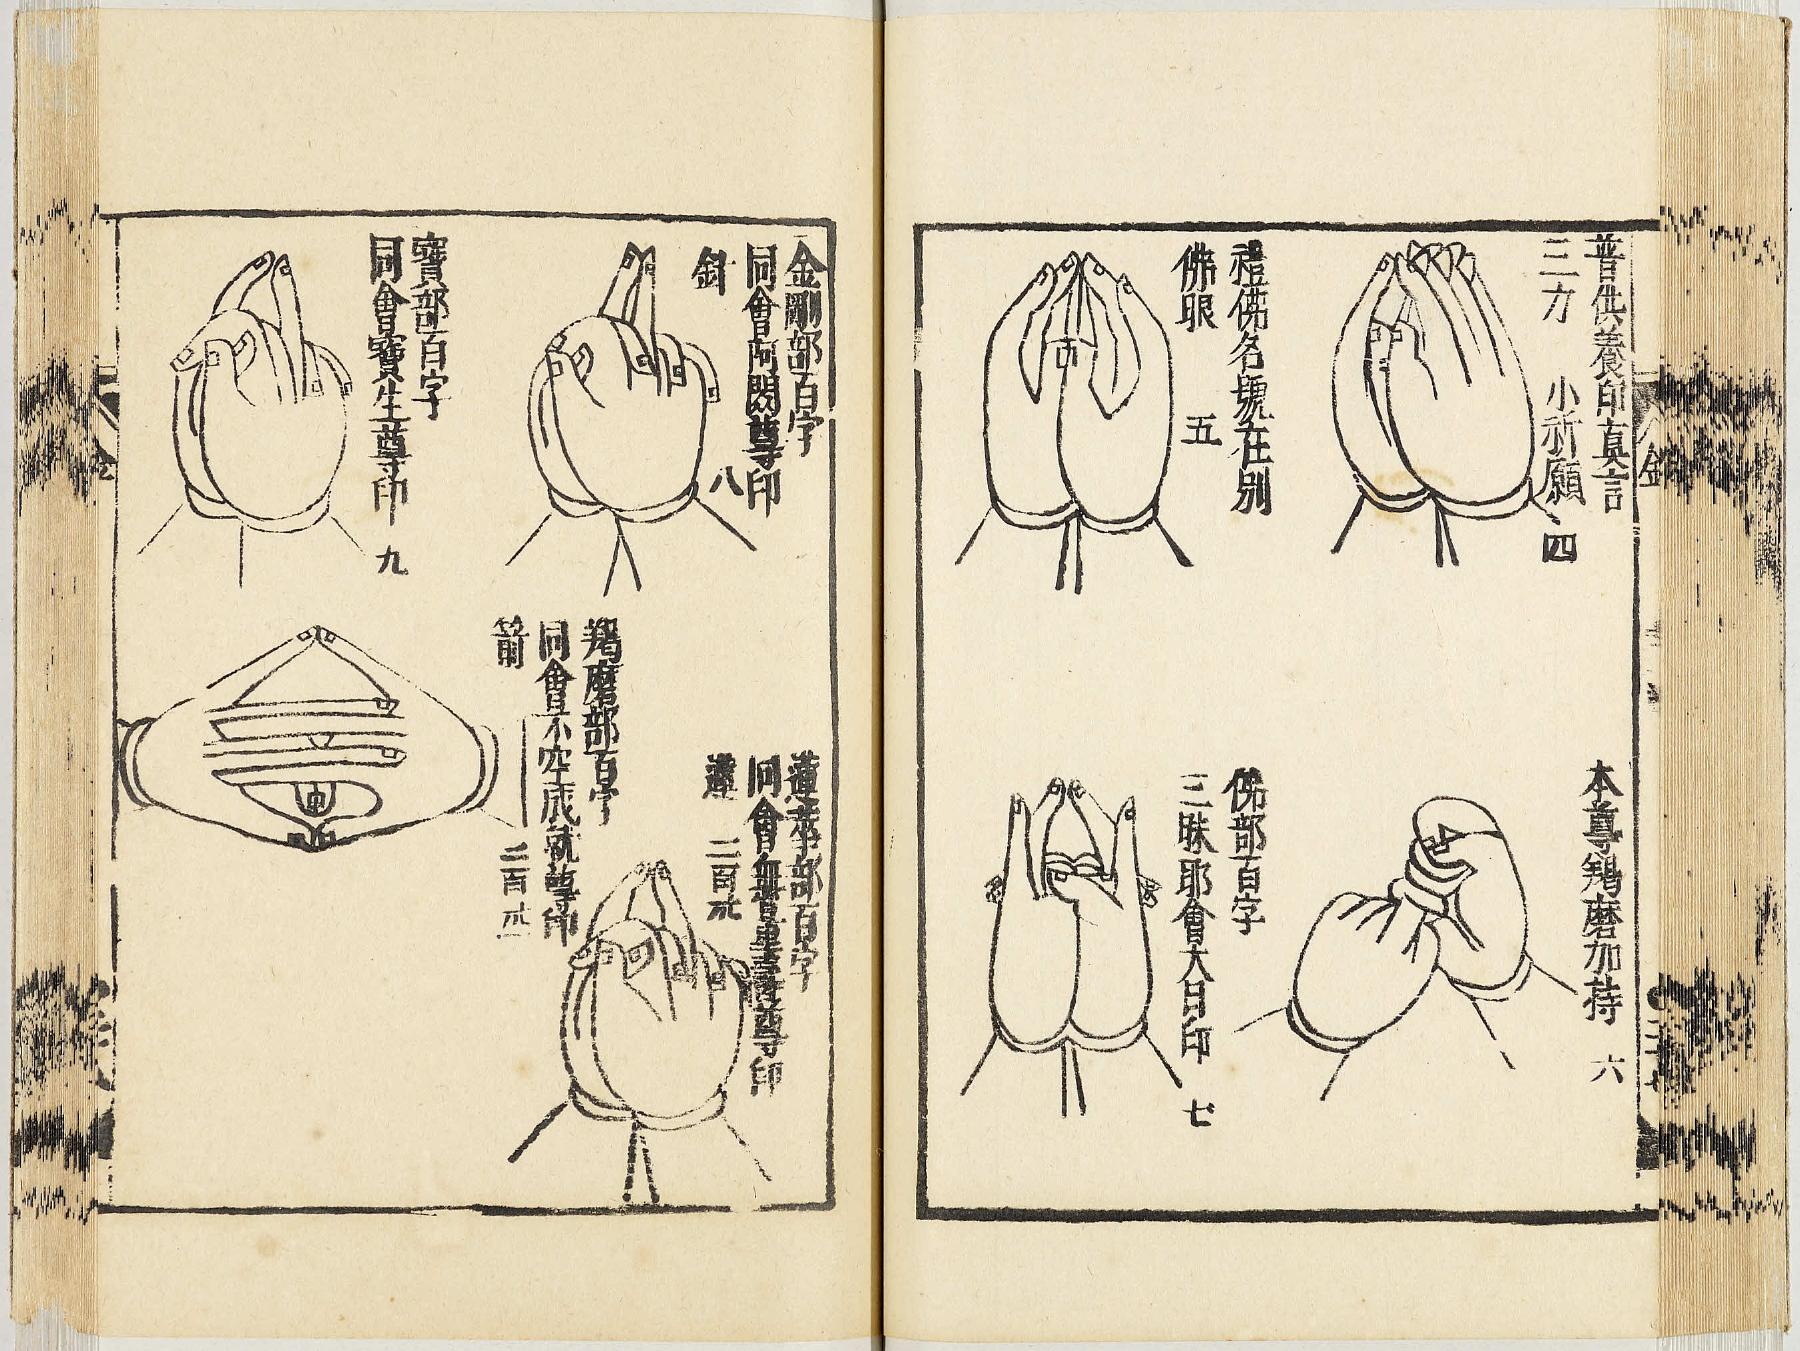 普供養印真言
三力　小祈願　四
本尊羯磨加持　六
禮佛名號在別
佛眼　五
佛部百字
三昧耶會大日印　七
金剛部百字
同會阿閦尊印
針　八
蓮華部百字
同會無量壽尊印
蓮　二百卅
寶部百字
同會寶生尊印　九
羯磨部百字
同會不空成就尊印
箭